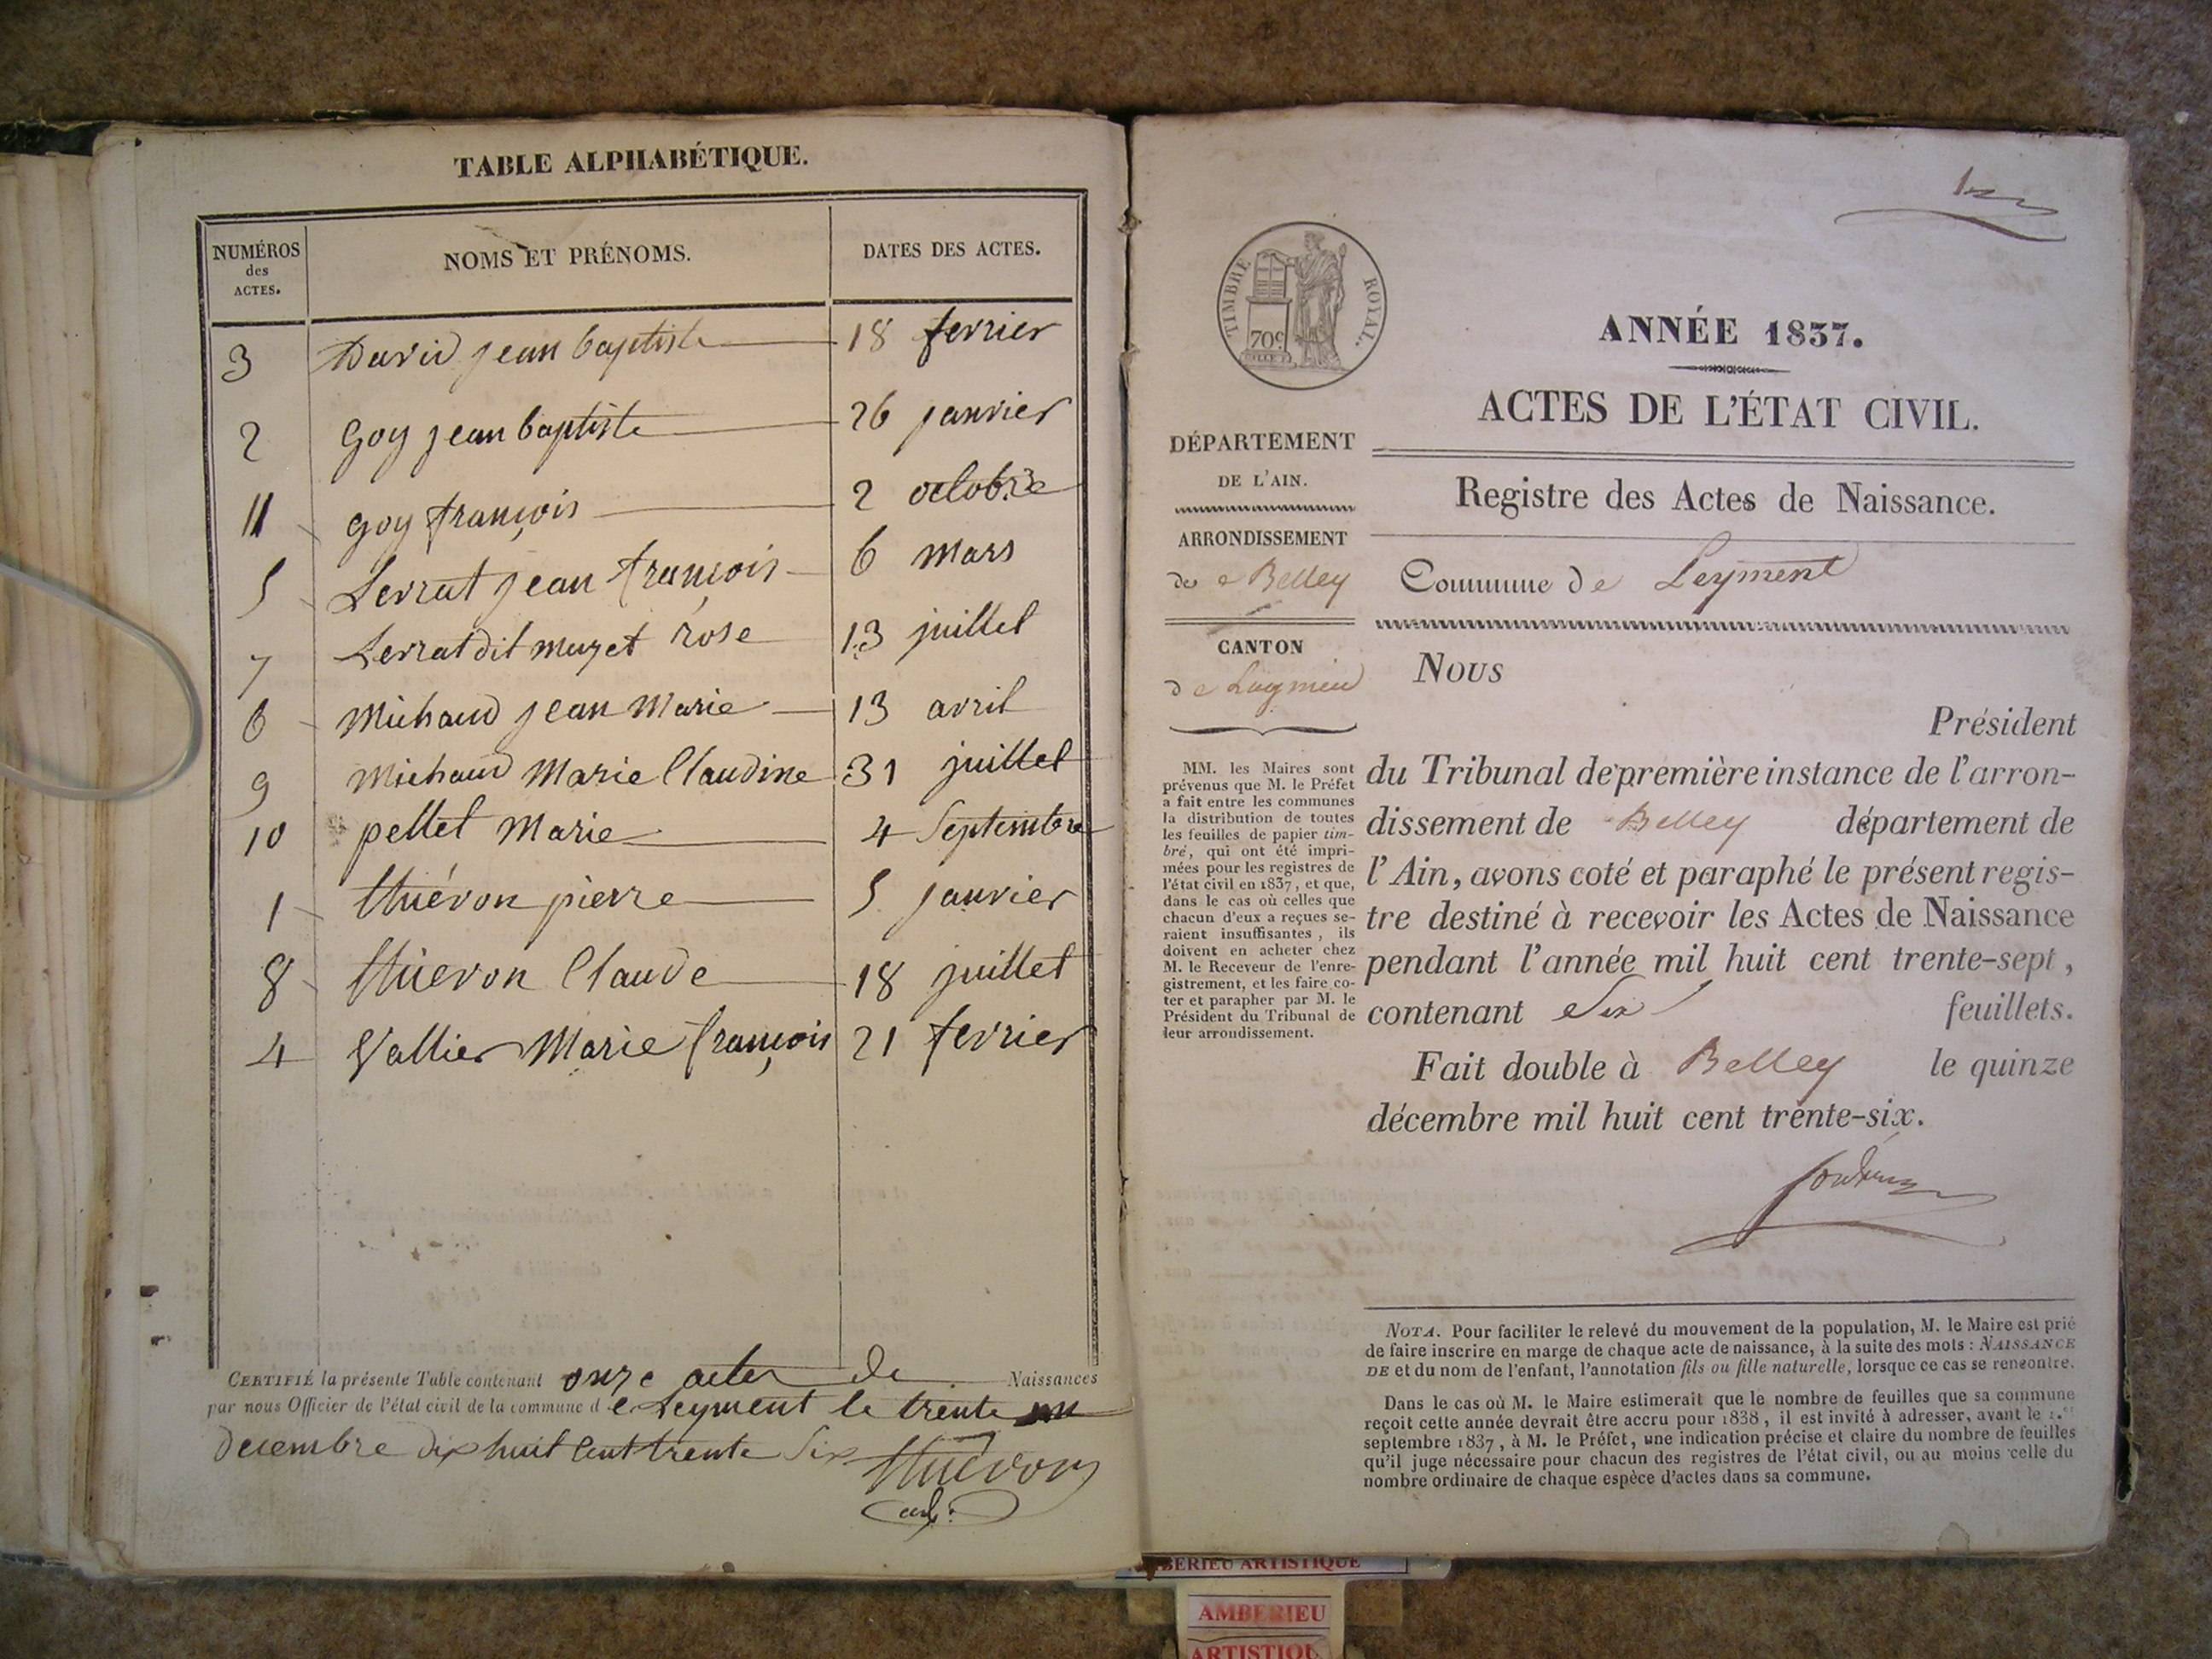 TABLE ALPHABÉTIQUE.
NUMÉROS des ACTES. NOMS ET PRÉNOMS. DATES DES ACTES.
3 David jean baptiste 18 fevrier
2 Goy jean baptiste 26 janvier
11 goy françois 2 octobre
5 Serrut jean françois 6 mars
7 Serrat dit muzet rose 13 juillet
6 Michaud jean Marie 13 avril
9 Michaud Marie Claudine 31 juillet
10 pellet Marie 4 Septembre
1 thiévon pierre 5 janvier
8 thievon Claude 18 juillet
4 Vallier Marie françois 21 fevrier
CERTIFIÉ la présente Table contenant onze actes de Naissances
par nous Officier de l'état civil de la commune de Leyment le trente un
decembre dix huit cent trente Six thievon
adj.
1er
TIMBRE ROYAL.
70c
ANNÉE 1837.
ACTES DE L'ÉTAT CIVIL.
Registre des Actes de Naissance.
Commune de Leyment
DÉPARTEMENT
DE L'AIN.
ARRONDISSEMENT
de Belley
CANTON
de Lagnieu
MM. les Maires sont
prévenus que M. le Préfet
a fait entre les communes
la distribution de toutes
les feuilles de papier tim-
bré, qui ont été impri-
mées pour les registres de
l'état civil en 1837, et que,
dans le cas où celles que
chacun d'eux a reçues se-
raient insuffisantes, ils
doivent en acheter chez
M. le Receveur de l'enre-
gistrement, et les faire co-
ter et parapher par M. le
Président du Tribunal de
leur arrondissement.
Nous
Président
du Tribunal de première instance de l'arron-
dissement de Belley département de
l'Ain, avons coté et paraphé le présent regis-
tre destiné à recevoir les Actes de Naissance
pendant l'année mil huit cent trente-sept,
contenant Six feuillets.
Fait double à Belley le quinze
décembre mil huit cent trente-six.
NOTA. Pour faciliter le relevé du mouvement de la population, M. le Maire est prié
de faire inscrire en marge de chaque acte de naissance, à la suite des mots : NAISSANCE
DE et du nom de l'enfant, l'annotation fils ou fille naturelle, lorsque ce cas se rencontre.
Dans le cas où M. le Maire estimerait que le nombre de feuilles que sa commune
reçoit cette année devrait être accru pour 1838, il est invité à adresser, avant le 1.er
septembre 1837, à M. le Préfet, une indication précise et claire du nombre de feuilles
qu'il juge nécessaire pour chacun des registres de l'état civil, ou au moins celle du
nombre ordinaire de chaque espèce d'actes dans sa commune.
AMBERIEU ARTISTIQUE
AMBERIEU
ARTISTIQU